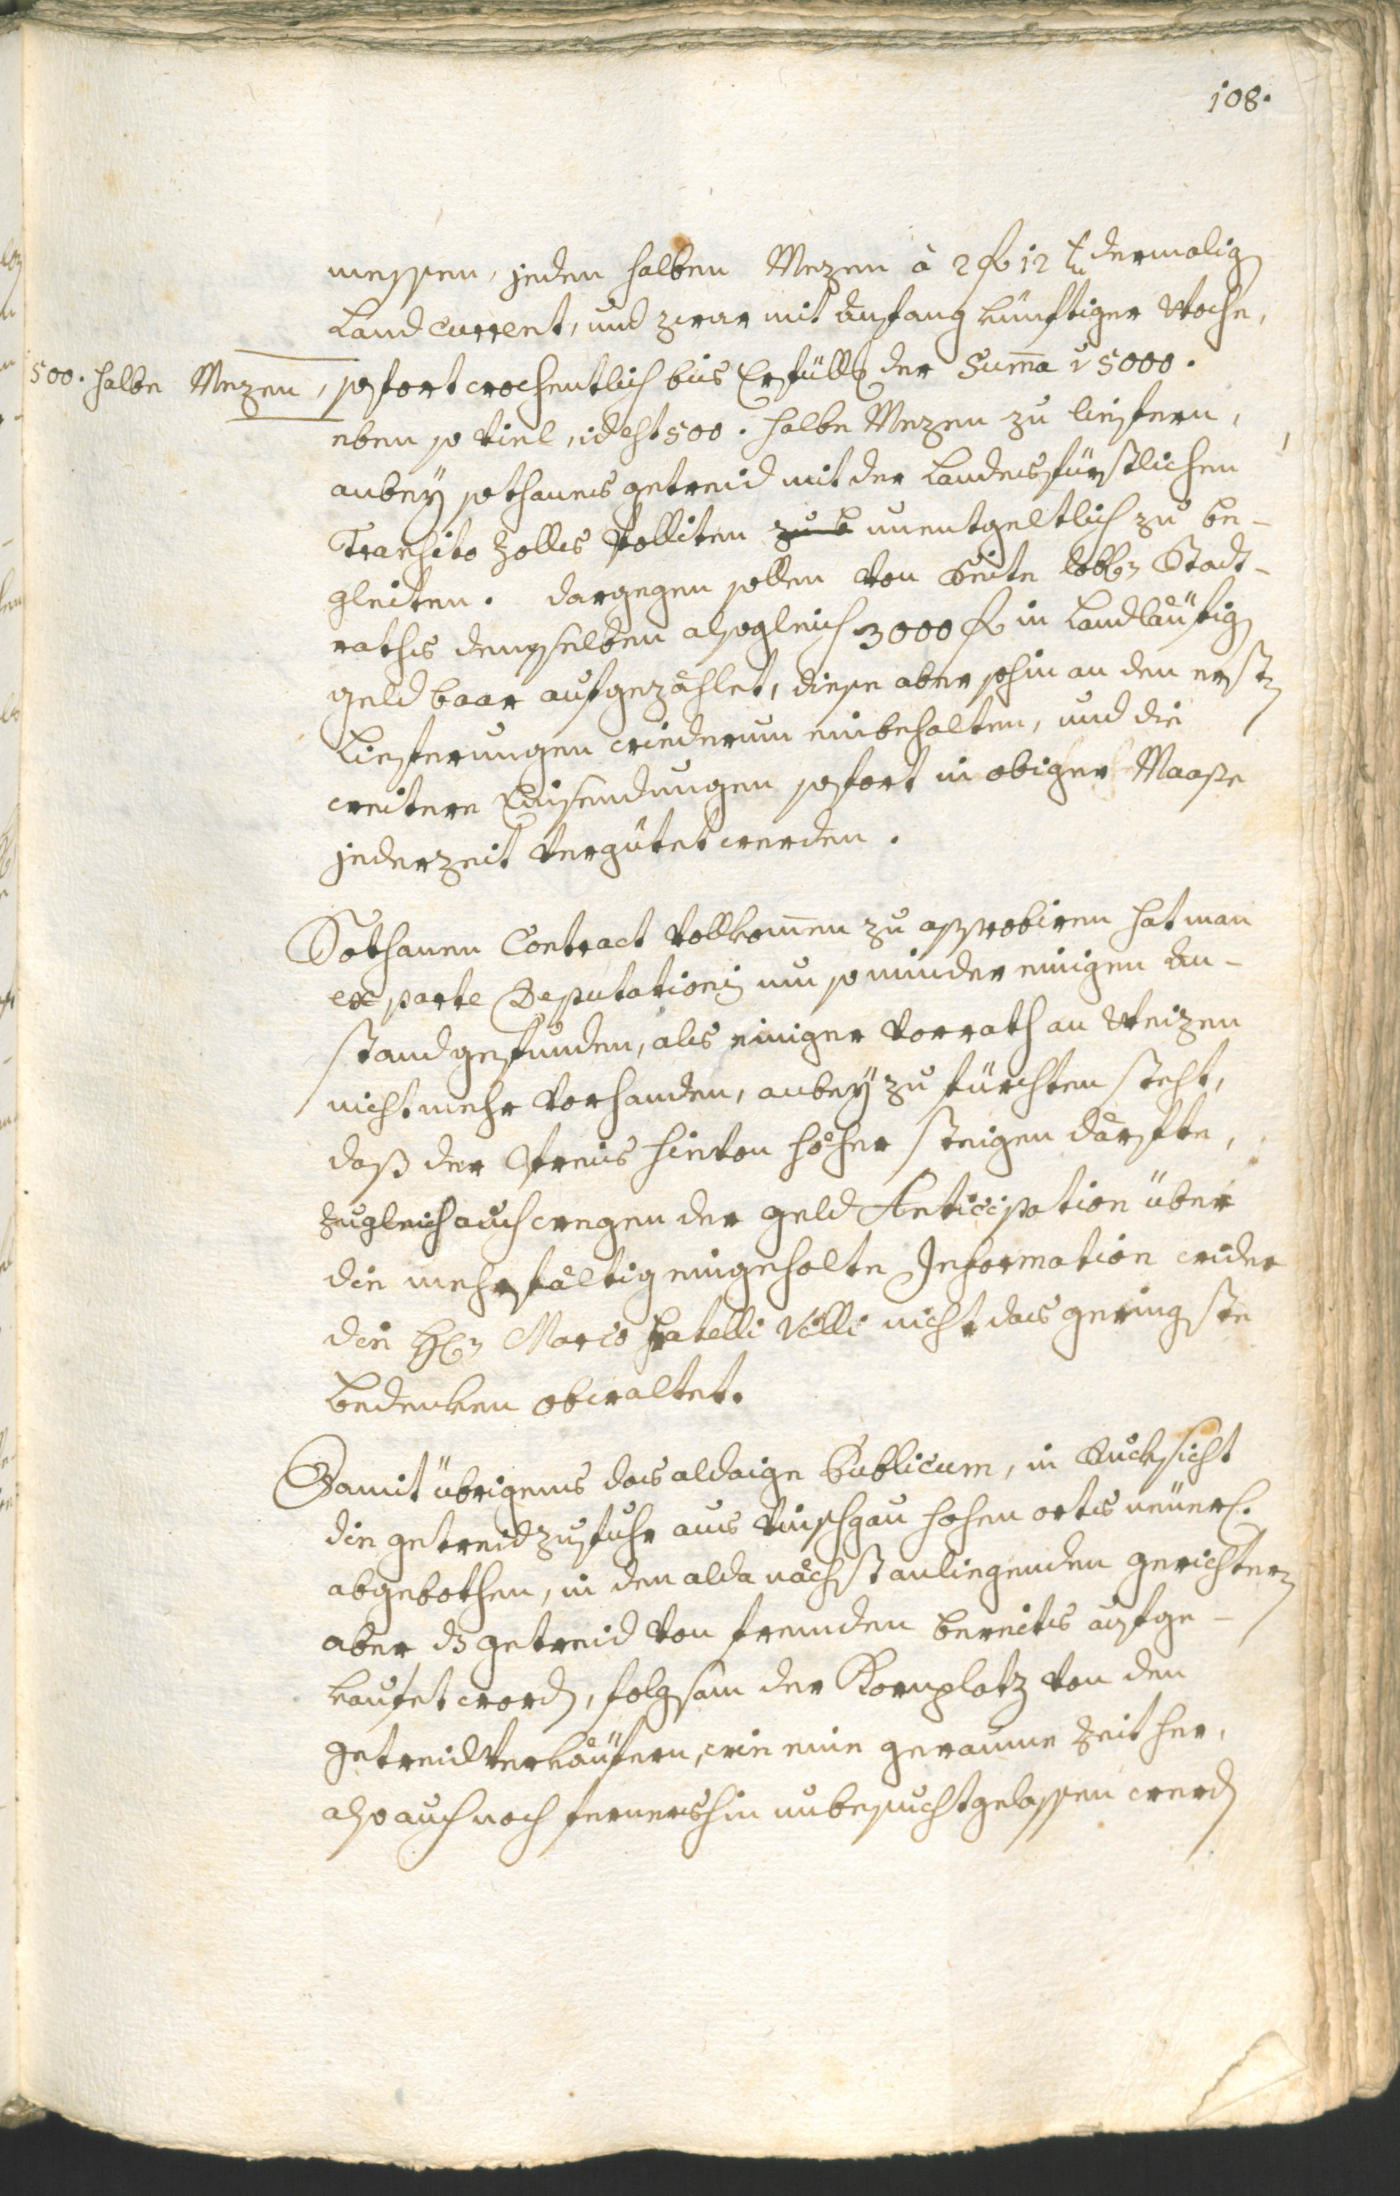 108.
messen, jeden halben Mezen à 2 f 12 x dermalig
Land Current, und zwar mit Anfang künftiger Woche,
500. halbe Mezen, sofort wochentlich bis Erfüllg der Suma v 5000.
eben so viel, id est 500. halbe Mezen zu liefern,
anbeÿ sothanes getreid mit der Landesfürstlichen
Transito Zolles Polliten zu b unentgeltlich zu be-
gleiten. dargegen sollen von Seite löbln Stadt-
raths demselben alsogleich 3000 f in Landläufig
geld baar aufgezählet, diese aber sohin an den erstn
Lieferungen wiederum einbehalten, und die
weitere Einsendungen sofort in obiger Maaße
jederzeit vergütet werden.
Sothanen Contract vollkomen zu approbiren hat man
ex parte Deputationis um so minder einigen An-
stand gefunden, als einiger Vorrath an Weizen
nicht mehr vorhanden, anbeÿ zu fürchten steht,
daß der Preis hievon höher steigen därfte,
zugleich auch wegen der geld Anticipation über
die mehrfältig eingeholte Information wider
die Hℓn Mario Fratelli Villi nicht das geringste
bedenken obwaltet.
Damit übrigens das aldaige Publicum, in Rucksicht
die getreid zufuhr aus Vinschgau hohen orts neüerl.
abgebothen, in den alda nächst anliegenden gerichtern
aber dz getreid von fremden bereits aufge-
kaufet word, folgsam der Kornplatz von den
getreid Verkäüfern, wie eine geraume Zeit her,
also auch noch fernershin unbesucht gelassen werd